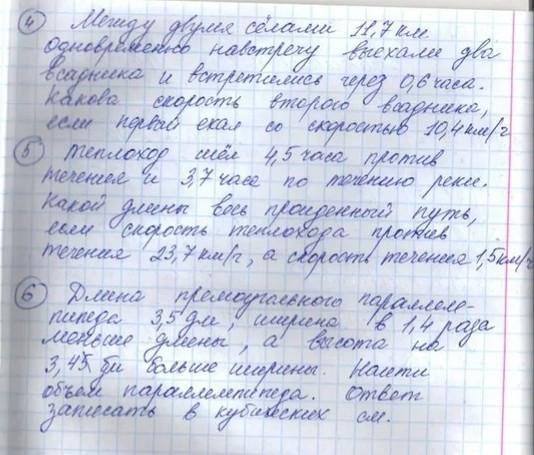 4 Между двумя сёлами 11,7 км
одновременно навстречу выехали два
всадника и встретились через 0,6 часа.
Какова скорость второго всадника,
если первый ехал со скоростью 10,4 км/ч
5 Теплоход шёл 4,5 часа против
течения и 3,7 часа по течению реки.
Какой длины весь пройденный путь,
если скорость теплохода против
течения 23,7 км/ч, а скорость течения 1,5 км/ч
6 Длина прямоугольного параллеле-
пипеда 3,5 дм, ширина в 1,4 раза
меньше длины, а высота на
3,45 больше ширины. Найти
объем параллелепипеда. Ответ
записать в кубических см.